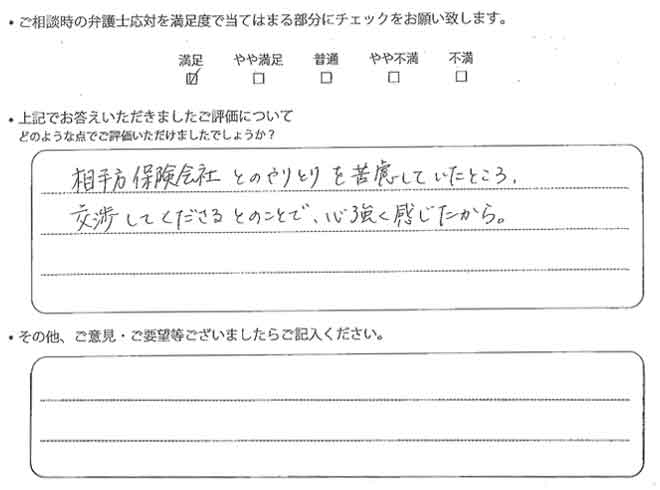 ・ご相談時の弁護士応対を満足度で当てはまる部分にチェックをお願い致します。
満足 やや満足 普通 やや不満 不満
☑ □ □ □ □
・上記でお答えいただきましたご評価について
どのような点でご評価いただけましたでしょうか？
相手方保険会社とのやりとりを苦慮していたところ、
交渉してくださるとのことで、心強く感じたから。
・その他、ご意見・ご要望等ございましたらご記入ください。